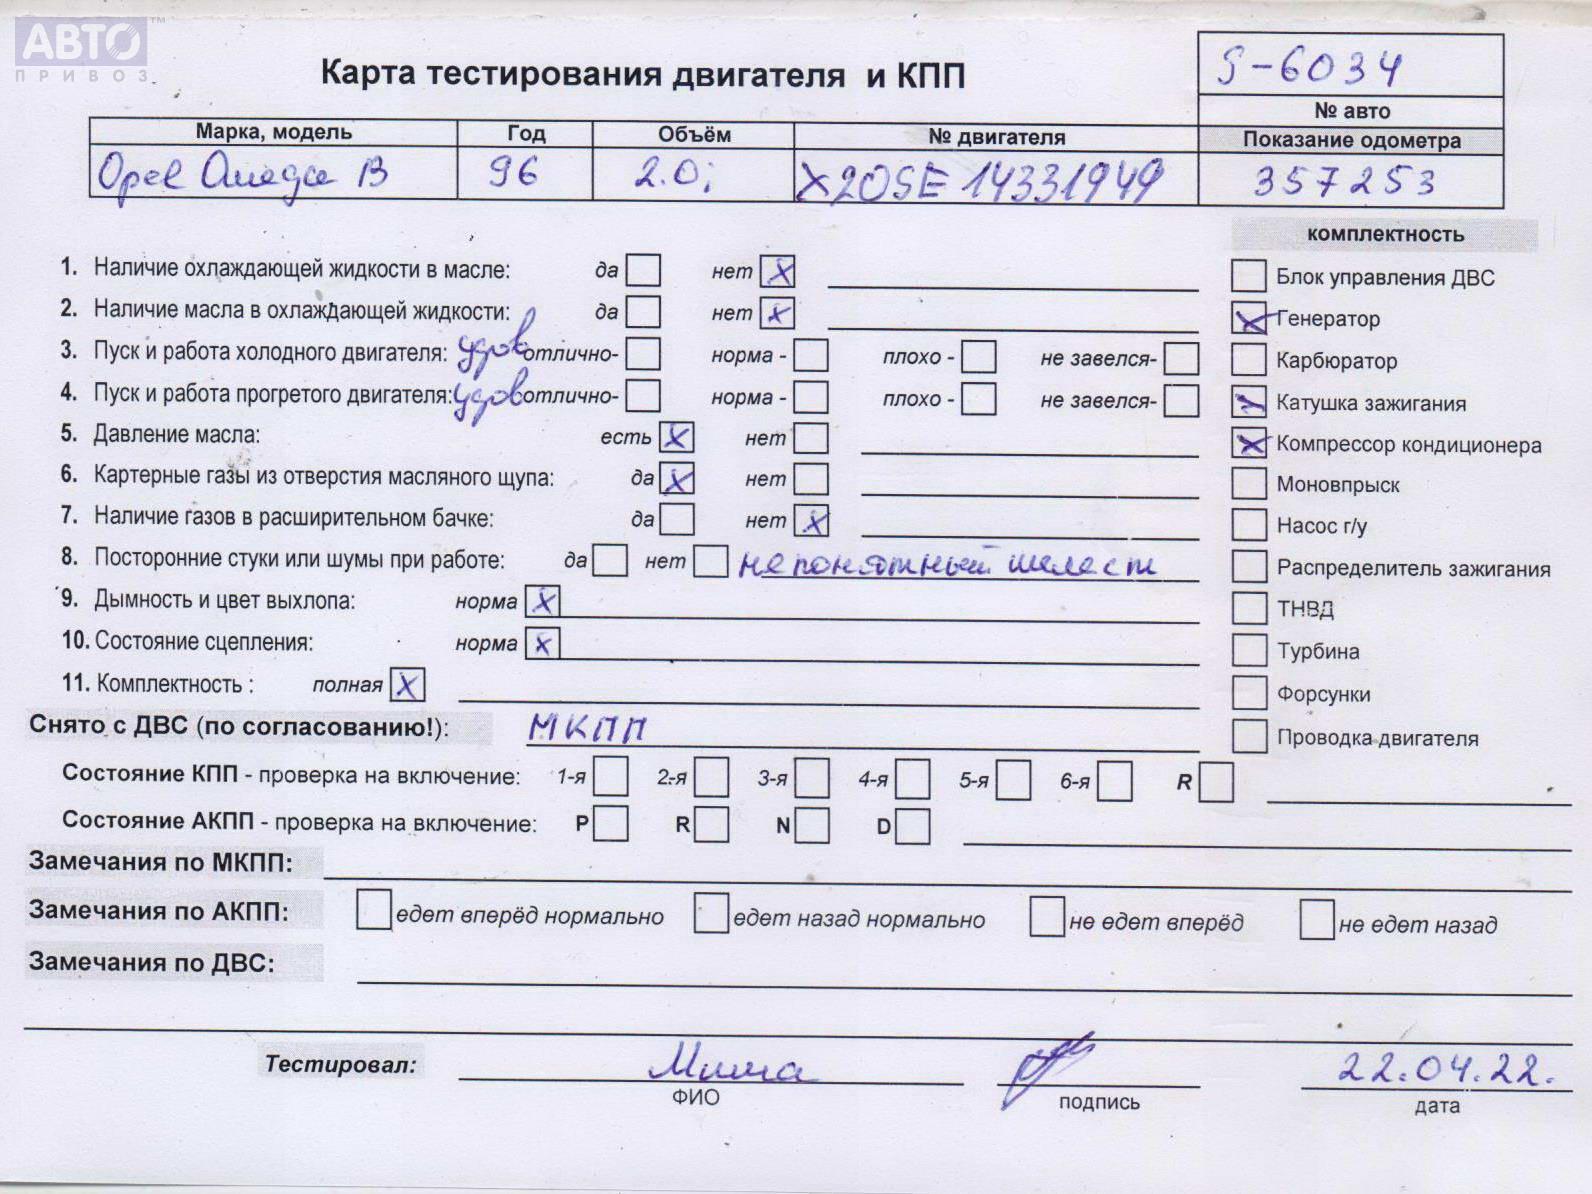 АВТО
ПРИВОЗ
TM
Карта тестирования двигателя и КПП
S-6034
№ авто
Марка, модель Год Объём № двигателя Показание одометра
Opel Omega B 96 2.0i X20SE 14331949 357253
комплектность
1. Наличие охлаждающей жидкости в масле: да нет X
2. Наличие масла в охлаждающей жидкости: да нет X
3. Пуск и работа холодного двигателя: удов отлично- норма - плохо - не завелся-
4. Пуск и работа прогретого двигателя: удов отлично- норма - плохо - не завелся-
5. Давление масла: есть X нет
6. Картерные газы из отверстия масляного щупа: да X нет
7. Наличие газов в расширительном бачке: да нет X
8. Посторонние стуки или шумы при работе: да нет непонятный шелест
9. Дымность и цвет выхлопа: норма X
10. Состояние сцепления: норма X
11. Комплектность : полная X
Блок управления ДВС
X Генератор
Карбюратор
X Катушка зажигания
X Компрессор кондиционера
Моновпрыск
Насос г/у
Распределитель зажигания
ТНВД
Турбина
Форсунки
Проводка двигателя
Снято с ДВС (по согласованию!): МКПП
Состояние КПП - проверка на включение: 1-я 2-я 3-я 4-я 5-я 6-я R
Состояние АКПП - проверка на включение: P R N D
Замечания по МКПП:
Замечания по АКПП: едет вперёд нормально едет назад нормально не едет вперёд не едет назад
Замечания по ДВС:
Тестировал: Миша 22.04.22.
ФИО подпись дата